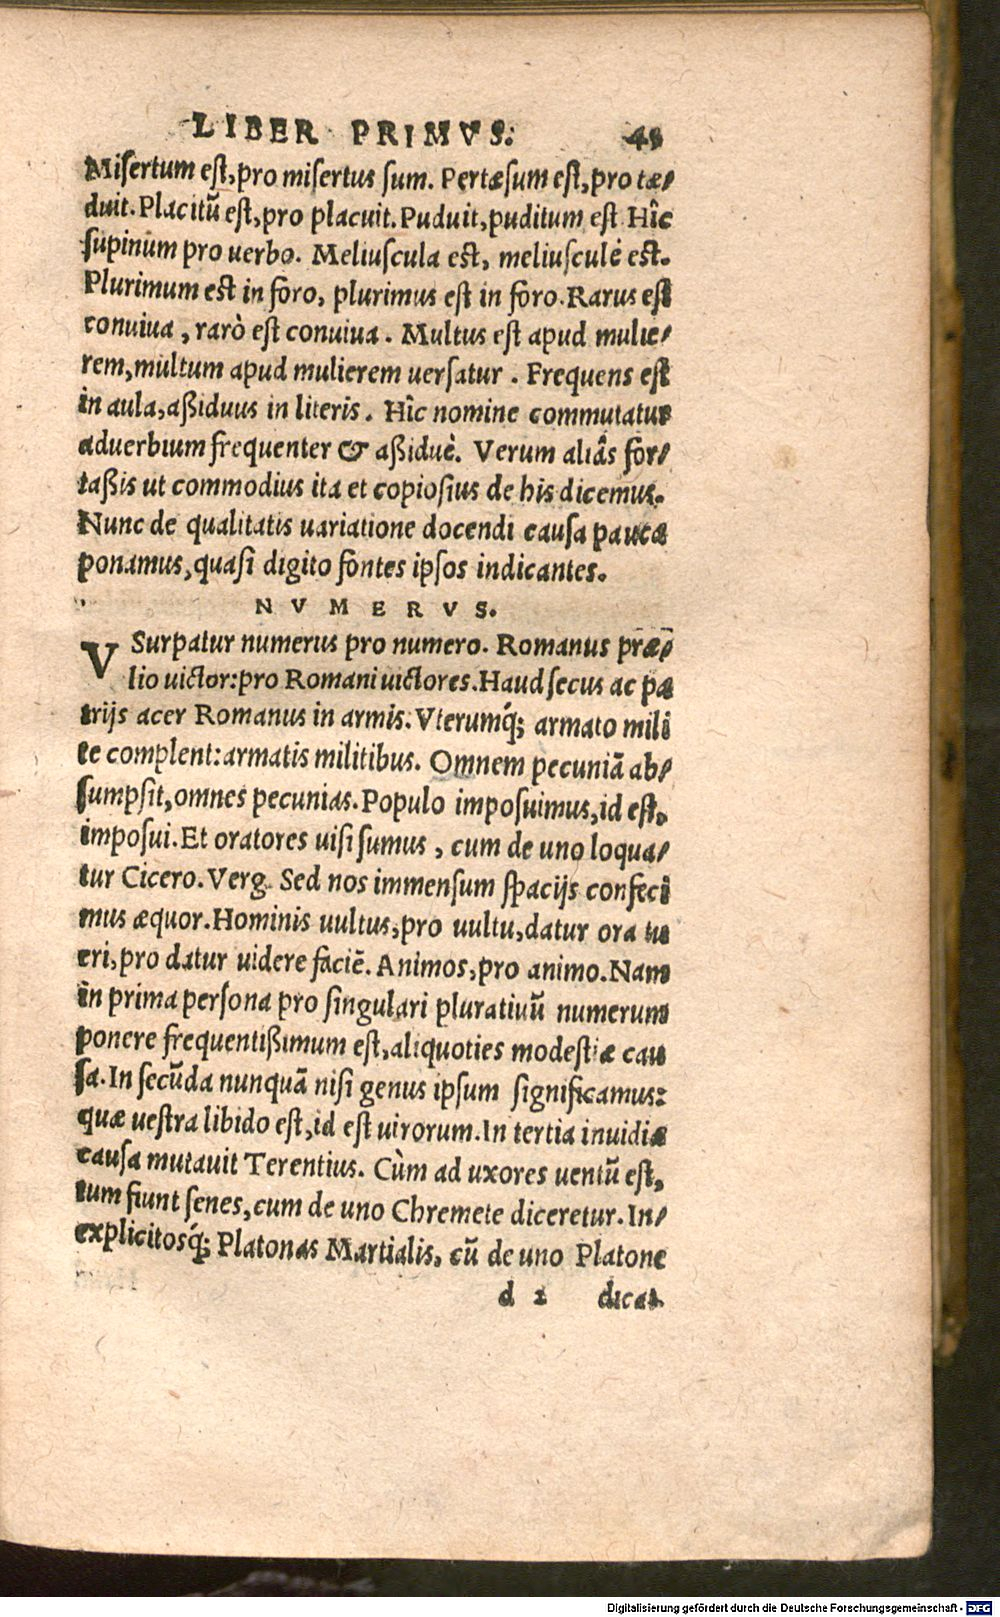 LIBER PRIMVS. 49
Misertum est, pro misertus sum. Pertæsum est, pro tæ-
duit. Placitũ est, pro placuit. Puduit, puditum est Hîc
supinum pro uerbo. Meliuscula est, meliusculè est.
Plurimum est in foro, plurimus est in foro. Rarus est
conuiua, rarò est conuiua. Multus est apud mulie-
rem, multum apud mulierem uersatur. Frequens est
in aula, aßiduus in literis. Hîc nomine commutatur
aduerbium frequenter & aßiduè. Verum aliâs for-
taßis ut commodius ita et copiosius de his dicemus.
Nunc de qualitatis uariatione docendi causa pauca
ponamus, quasi digito fontes ipsos indicantes.
NVMERVS.
VSurpatur numerus pro numero. Romanus præ-
lio uictor: pro Romani uictores. Haud secus ac pa
trijs acer Romanus in armis. Vterumq́; armato mili
te complent: armatis militibus. Omnem pecuniã ab-
sumpsit, omnes pecunias. Populo imposuimus, id est,
imposui. Et oratores uisi sumus, cum de uno loqua-
tur Cicero. Verg. Sed nos immensum spacijs confeci
mus æquor. Hominis uultus, pro uultu, datur ora tu
eri, pro datur uidere faciẽ. Animos, pro animo. Nam
in prima persona pro singulari pluratiuũ numerum
ponere frequentißimum est, aliquoties modestiæ cau
sa. In secũda nunquã nisi genus ipsum significamus:
quæ uestra libido est, id est uirorum. In tertia inuidiæ
causa mutauit Terentius. Cùm ad uxores uentũ est,
tum fiunt senes, cum de uno Chremete diceretur. In-
explicitosq́; Platonas Martialis, cũ de uno Platone
d 2 dicat
Digitalisierung gefördert durch die Deutsche Forschungsgemeinschaft - DFG